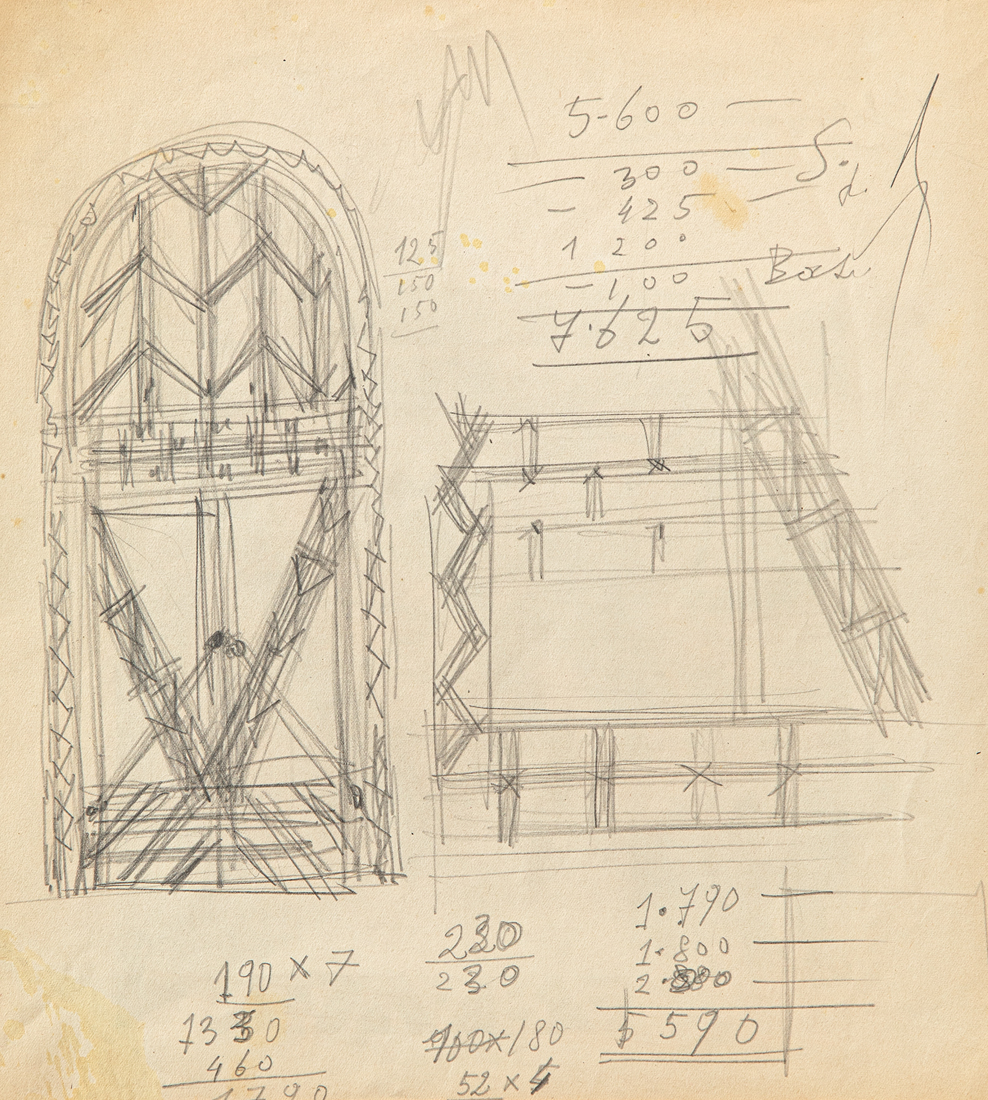 5-600 —
— 300 —
— 425
1 200
— 100
7.625
125
150
150
190 x 7
1330
460
1790
230
230
180
52 x 4
1.790
1.800
5590